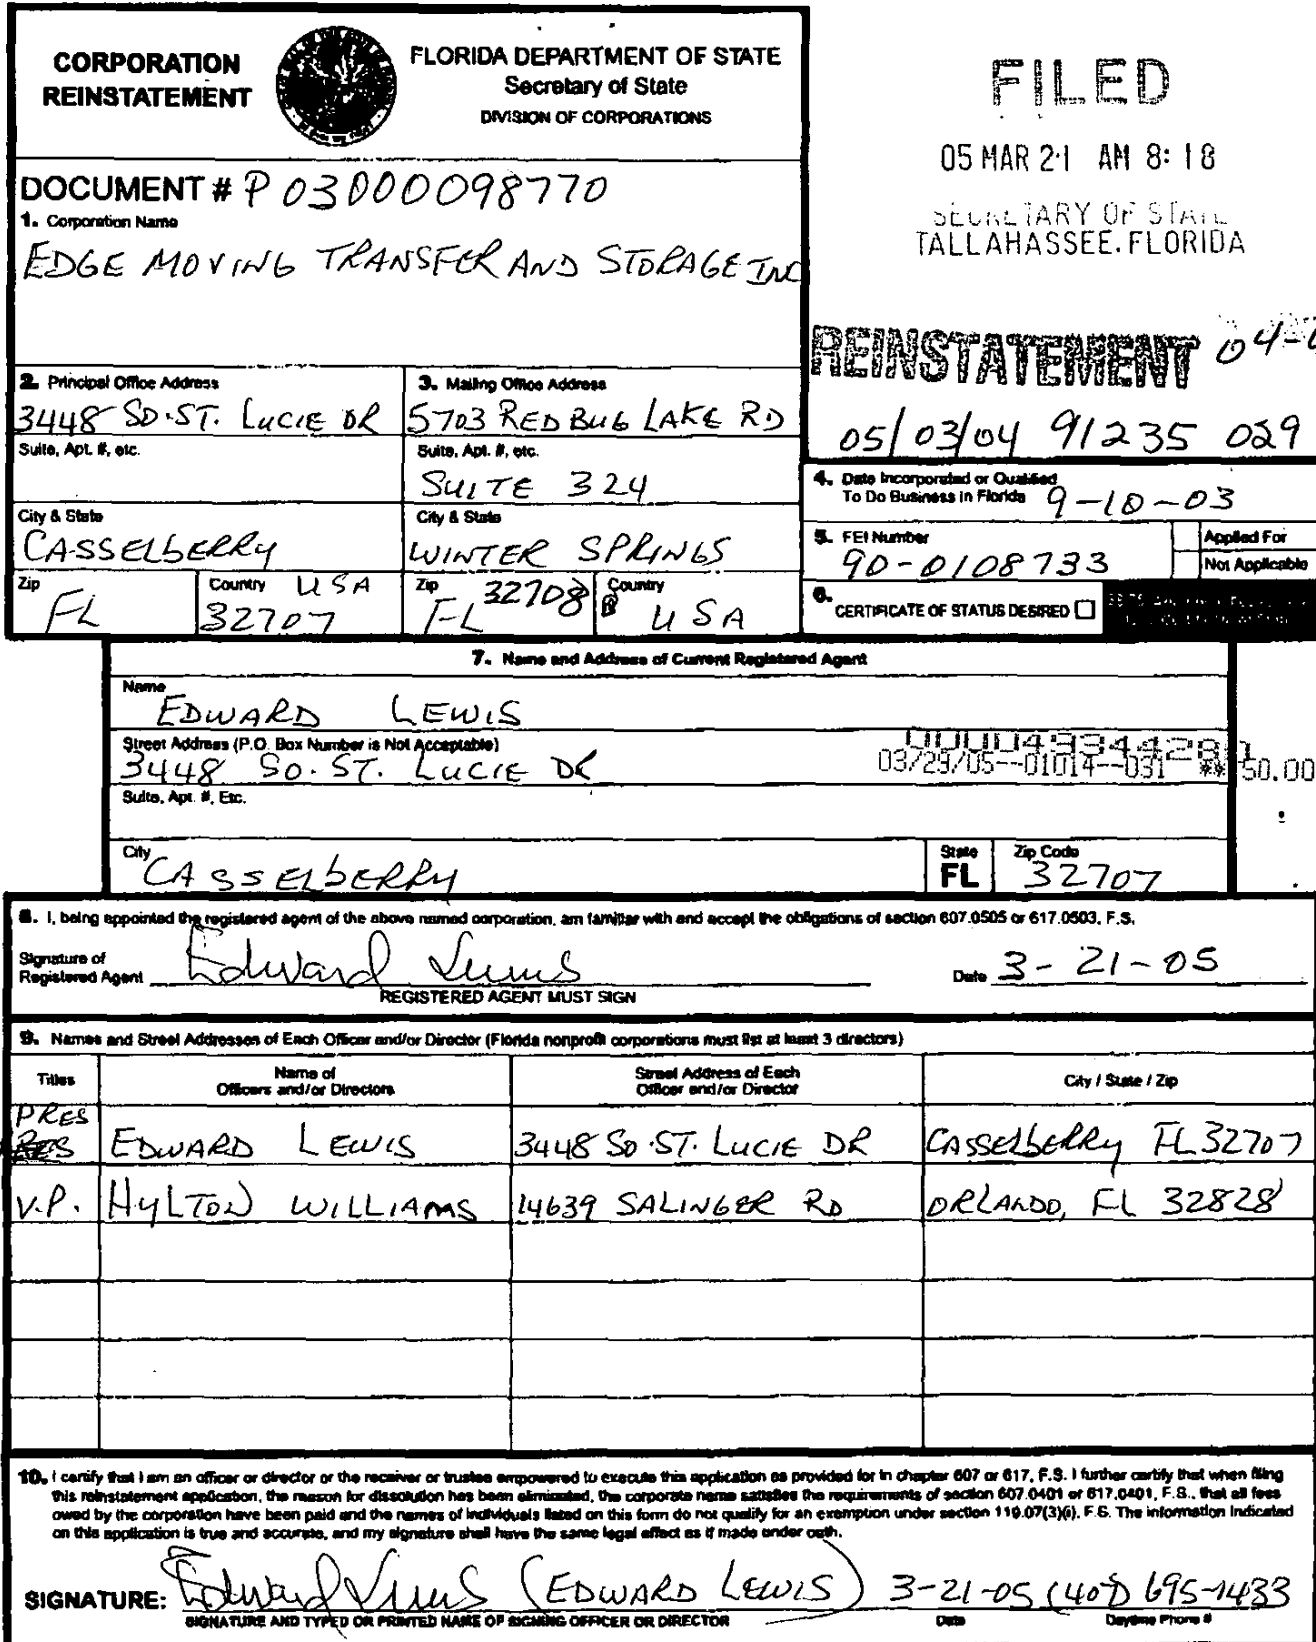 CORPORATION
REINSTATEMENT
FLORIDA DEPARTMENT OF STATE
Secretary of State
DIVISION OF CORPORATIONS
FILED
05 MAR 21 AM 8:18
SECRETARY OF STATE
TALLAHASSEE. FLORIDA
DOCUMENT # P03000098770
1. Corporation Name
EDGE MOVING TRANSFER AND STORAGE INC
REINSTATEMENT 04-
05/03/04 91235 029
2. Principal Office Address
3448 SO. ST. LUCIE DR
Suite, Apt. #, etc.
City & State
CASSELBERRY
Zip FL
Country USA
32707
3. Mailing Office Address
5703 RED BUG LAKE RD
Suite, Apt. #, etc.
SUITE 324
City & State
WINTER SPRINGS
Zip 32708
FL
Country
USA
4. Date Incorporated or Qualified
To Do Business in Florida 9-10-03
5. FEI Number
90-0108733
Applied For
Not Applicable
6.
CERTIFICATE OF STATUS DESIRED
7. Name and Address of Current Registered Agent
Name
EDWARD LEWIS
Street Address (P.O. Box Number is Not Acceptable)
3448 SO. ST. LUCIE DR
03/29/05--01014--031 **
50.00
Suite, Apt. #, Etc.
City
CASSELBERRY
State
FL
Zip Code
32707
8. I, being appointed the registered agent of the above named corporation, am familiar with and accept the obligations of section 607.0505 or 617.0503, F.S.
Signature of
Registered Agent Edward Lewis
Date 3-21-05
REGISTERED AGENT MUST SIGN
9. Names and Street Addresses of Each Officer and/or Director (Florida nonprofit corporations must list at least 3 directors)
Titles
Name of
Officers and/or Directors
Street Address of Each
Officer and/or Director
City / State / Zip
PRES
EDWARD LEWIS 3448 SO. ST. LUCIE DR CASSELBERRY FL 32707
V.P. HYLTON WILLIAMS 14639 SALINGER RD ORLANDO, FL 32828
10. I certify that I am an officer or director or the receiver or trustee empowered to execute this application as provided for in chapter 607 or 617, F.S. I further certify that when filing
this reinstatement application, the reason for dissolution has been eliminated, the corporate name satisfies the requirements of section 607.0401 or 617.0401, F.S., that all fees
owed by the corporation have been paid and the names of individuals listed on this form do not qualify for an exemption under section 119.07(3)(i), F.S. The information indicated
on this application is true and accurate, and my signature shall have the same legal effect as if made under oath.
SIGNATURE: Edward Lewis (EDWARD LEWIS) 3-21-05 (407) 695-1433
SIGNATURE AND TYPED OR PRINTED NAME OF SIGNING OFFICER OR DIRECTOR
Date
Daytime Phone #